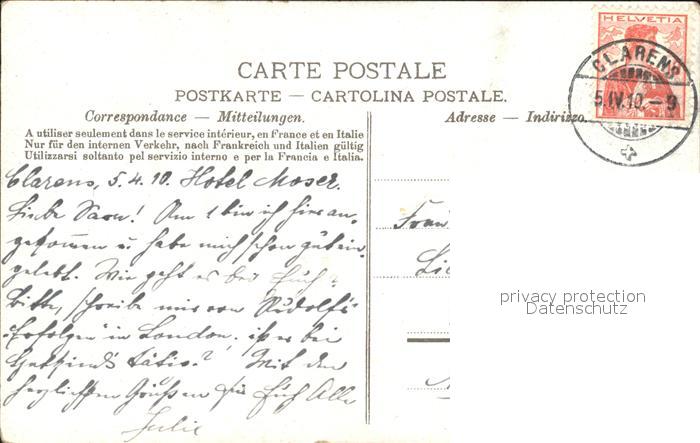 HELVETIA
CLARENS
5.IV.10.-9
CARTE POSTALE
POSTKARTE — CARTOLINA POSTALE.
Correspondance — Mitteilungen.
Adresse — Indirizzo.
A utiliser seulement dans le service intérieur, en France et en Italie
Nur für den internen Verkehr, nach Frankreich und Italien gültig
Utilizzarsi soltanto pel servizio interno e per la Francia e Italia.
Clarens, 5.4.10. Hotel Moser.
Liebe! Am 1 bin ich hier an-
gekommen u habe mich schon gut ein-
gelebt. Wie geht es bei Euch?
Bitte, schreibe mir von Rudolf's
Erfolgen in London. ist er bei
tätig? Mit den
herzlichsten Grüßen für Euch Alle
Julie
Frau
privacy protection
Datenschutz